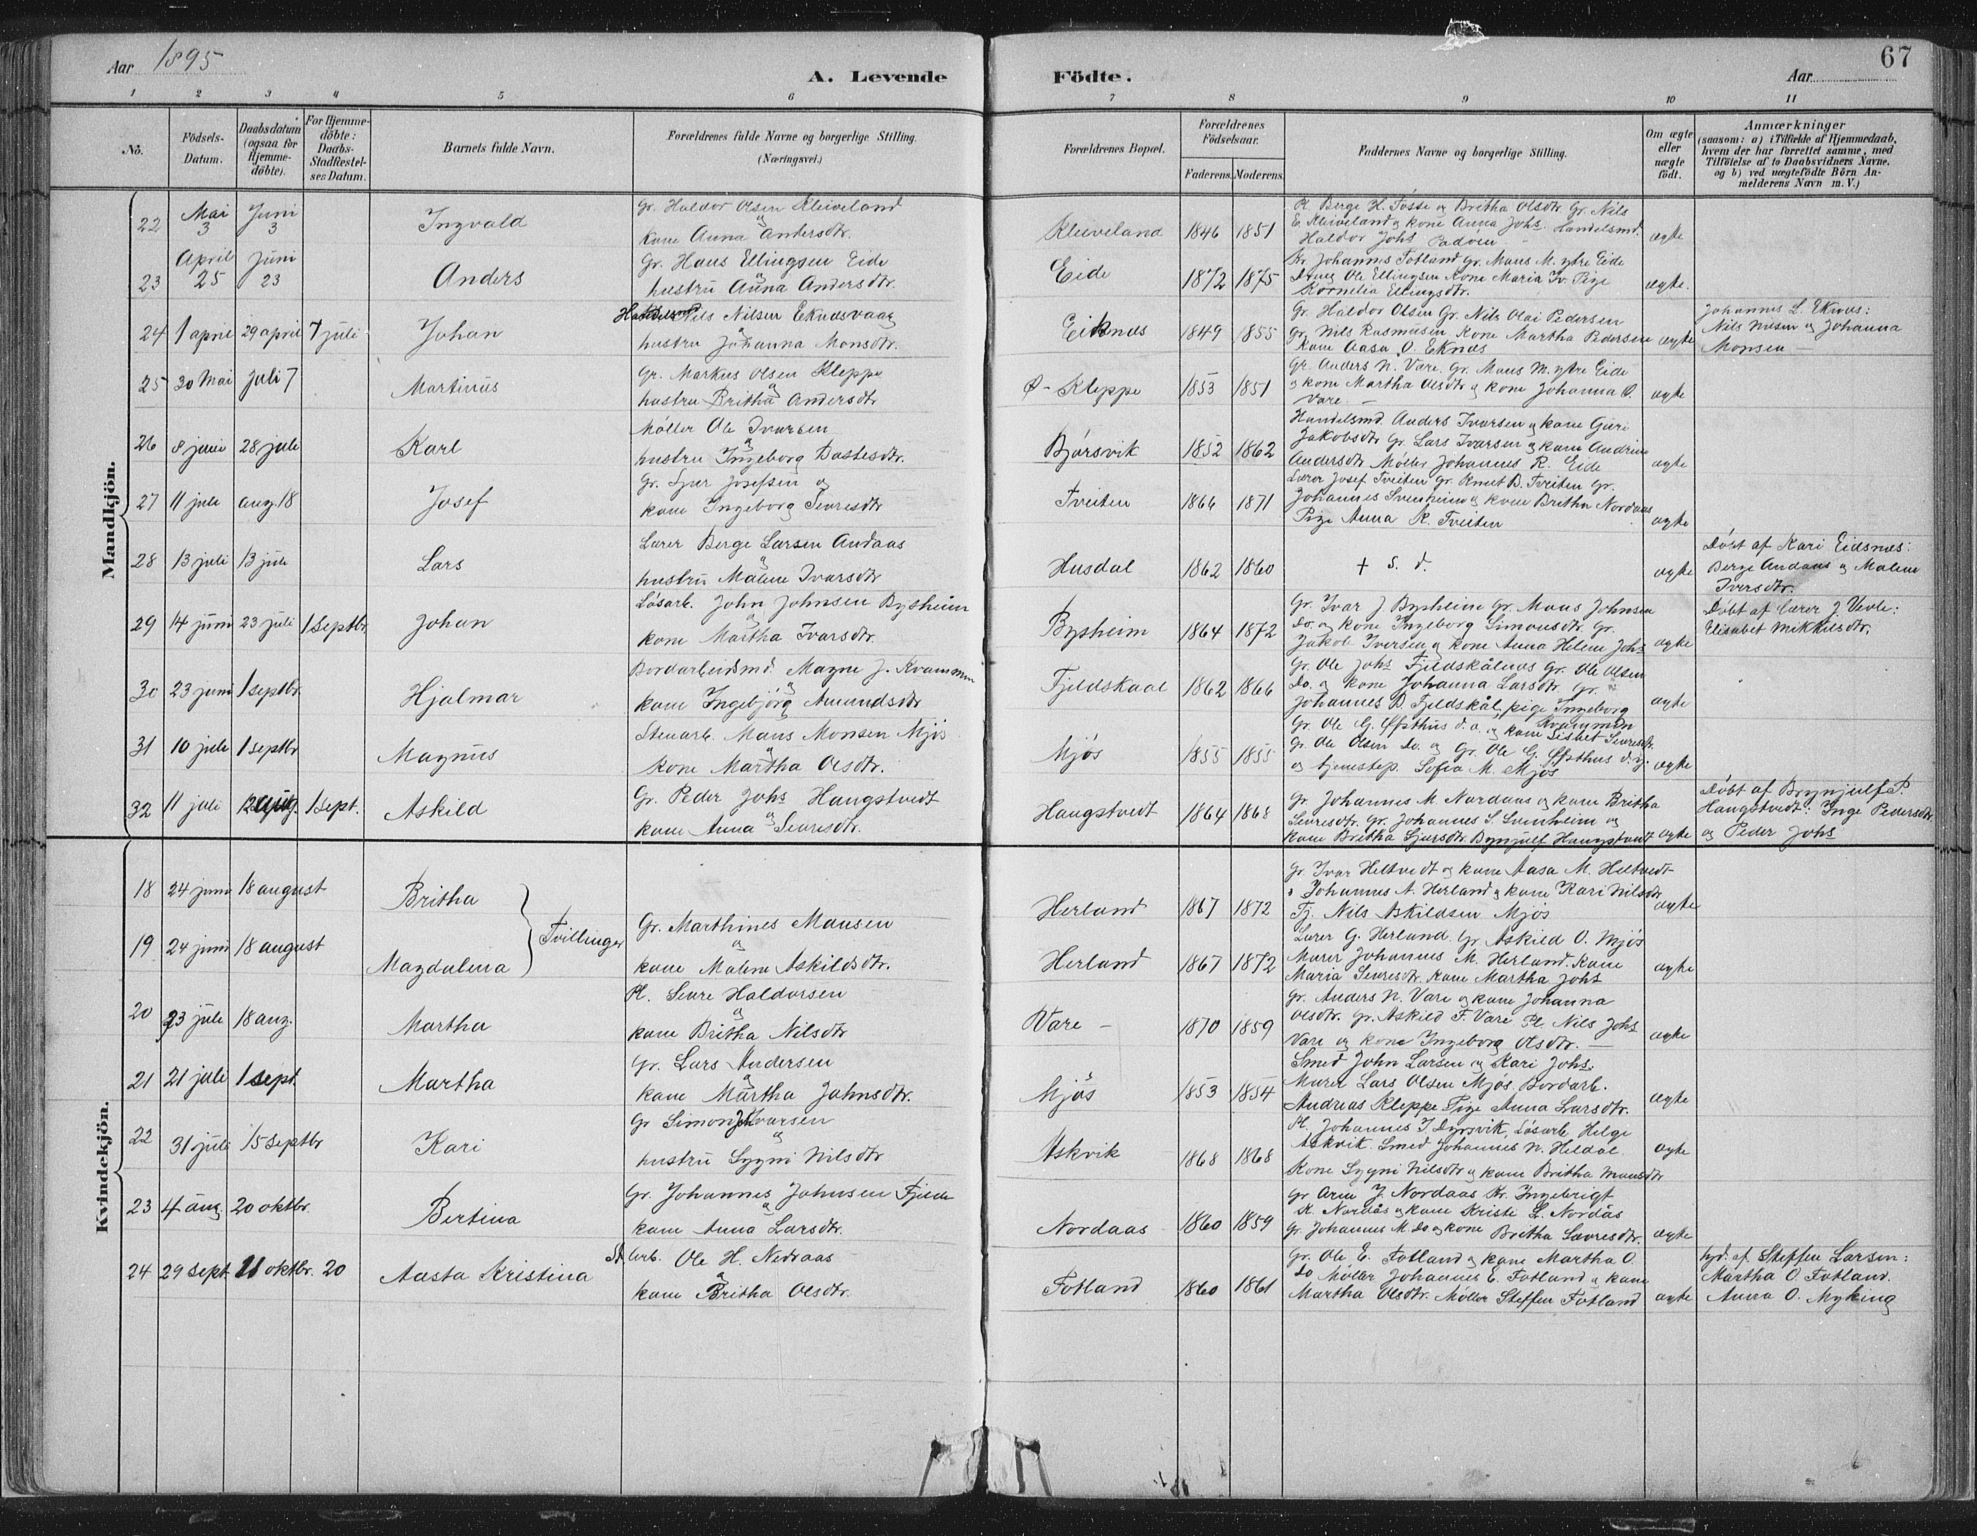 Aar 1895
A. Levende
Födte.
Aar
67
1 2 3 4 5 6 7 8 9 10 11
No.
Födsels-Datum.
Daabsdatum (ogsaa for Hjemme-döbte).
For Hjemme-döbte: Daabs-Stadfæstel-ses Datum.
Barnets fulde Navn.
Forældrenes fulde Navne og borgerlige Stilling. (Næringsvei.)
Forældrenes Bopæl.
Forældrenes Födselsaar.
Faderens. Moderens.
Faddernes Navne og borgerlige Stilling.
Om ægte eller uægte födt.
Anmærkninger
(saasom: a) i Tilfælde af Hjemmedaab, hvem der har forrettet samme, med Tilföielse af to Daabsvidners Navne, og b) ved uægtefödte Börn Anmelderens Navn m. V.)
Mandkjön.
22 Mai 3 Juni 3 Ingvald
Gr. Haldor Olsen Kleiveland
og
kone Anna Andersdtr.
Kleiveland 1846 1851
Pl. Berge H. Fosse og Britha Olsdtr. Gr. Nils
E. Kleiveland og kone Anna Johs. Handelsmd.
Haldor Johs
ægte
23 April 25 Juni 23 Anders
Gr. Hans Ellingsen Eide
og
hustru Anna Andersdtr.
Eide 1872 1875
Kr. Johannes Fotland Gr. Mans M. ytre Eide
Dreng Ole Ellingsen Kone Maria Iv. Pige
Kornelia Ellingsdtr.
ægte.
24 1 april 29 april 7 juli Johan
Nils Nilsen Eknesvaag
og
hustru Johanna Monsdtr.
Eiknes 1849 1855
Gr. Haldor Olsen Gr. Nils Olai Pedersen
Gr. Nils Rasmusen Kone Martha Pedersen
Kone Aasa O. Eknes
ægte
Johannes L. Eknes:
Nils Nilsen og Johanna
Monsen
25 20 Mai Juli 7 Martinus
Gr. Markus Olsen Kleppe
og
hustru Britha Andersdtr
Ø-Kleppe 1853 1851
Gr. Anders N. Vare. Gr. Mans M. ytre Eide
og kone Martha Olsdtr og kone Johanna O.
Vare.
ægte
26 8 juni 28 juli Karl
Möller Ole Ivarsen
og
hustru Ingeborg Bastesdtr.
Bjørsvik 1852 1862
Handelsmd. Anders Ivarsen og kone Guri
Jakobsdtr Gr. Lars Ivarsen og kone Andrine
Andersdtr Möller Johannes R. Eide
ægte
27 11 juli aug. 18 Josef
Gr. Sjur Josefsen og
kone Ingeborg Sevresdtr.
Tveiten 1866 1871
Lærer Josef Tveiten Gr. Knut B. Tveiten Gr.
Johannes Svenheim og kone Britha Nordaas
Pige Anna K. Tveiten
ægte
28 13 juli 13 juli Lars
Lærer Berge Larsen Andaas
og
hustru Malene Ivarsdtr
Husdal 1862 1860
+ s. d.
ægte
Döbt af Kari Eidsnes:
Berge Andaas og Malene
Iversdtr.
29 14 juni 23 juli 1 Septbr Johan
Løsarb. John Johnsen Bysheim
og
kone Martha Ivarsdtr.
Bysheim 1864 1872
Gr. Ivar J. Bysheim Gr. Mons Johnsen
Do. og kone Ingeborg Simonsdtr. Gr.
Jakob Iversen og kone Anna Helene Johs
ægte
Döbt af Lærer J. Vevle:
Elisabet Mikkelsdtr.
30 23 juni 1 septbr. Hjalmar
Bordarbeidsmd. Magne J. Kvammen
og
kone Ingebjörg Amundsdtr
Fjeldskaal 1862 1866
Gr. Ole Johs Fjeldskålnes Gr. Ole Olsen
Do. og kone Johanna Larsdtr. Gr.
Johannes B. Fjeldskål, pige Ingeborg
Kvammen
ægte
31 10 juli 1 septbr Magnus
Stenarb. Mans Monsen Mjös
og
kone Martha Olsdtr.
Mjös 1855 1855
Gr. Ole G. Øfsthus d. æ. og kone Lisbet Sevresdtr.
Gr. Ole Olsen Do. og Gr. Ole G. Øfsthus d. y.
og tjenestep. Sofia M. Mjös
ægte
32 11 juli 1 sept. Askild
Gr. Peder Johs Haugstvedt
og
kone Anna Sevresdtr.
Haugstvedt 1864 1868
Gr. Johannes M. Nordaas og kone Britha
Sevresdtr. Gr. Johannes S. Svenheim og
kone Britha Sjursdtr Brynjulf Haugstvedt
ægte
Döbt af Brynjulf P.
Haugstvedt: Inge Pedersdtr
og Peder Johs
Kvindekjön.
18 24 juni 18 august Britha
Tvillinger
Herland 1867 1872
Gr. Ivar Heltvedt og kone Aasa M. Heltvedt
Johannes A. Herland og kone Kari Nilsdtr
Tj. Nils Askildsen Mjös
ægte
19 24 juni 18 august Magdalena
Gr. Marthines Mansen
og
kone Malene Askildsdtr.
Herland 1867 1872
Lærer G. Herland. Gr. Askild O. Mjös
Murer Johannes M. Herland. Kone
Maria Sevresdtr. Kone Martha Johs
ægte
20 23 juli 18 aug. Martha
Pl. Sevre Haldorsen
og
kone Britha Nilsdtr
Vare 1870 1859
Gr. Anders N. Vare og kone Johanna
Olsdtr. Gr. Askild F. Vare Pl. Nils Johs
Vare og kone Ingeborg Olsdtr.
ægte
21 21 juli 1 sept. Martha
Gr. Lars Andersen
og
kone Martha Johnsdtr.
Mjös 1853 1854
Smed John Larsen og Kari Johs.
Murer Lars Olsen Mjös. Bordarb.
Andreas Kleppe Pige Anna Larsdtr.
ægte
22 31 juli 15 septbr Kari
Gr Simon Ivarsen
og
hustru Sygni Nilsdtr
Askvik 1868 1868
Pl. Johannes I. Dyrsvik, Løsarb. Helge
Askvik. Smed Johannes N. Heldal
Kone Sygni Nilsdtr og kone Britha Mansdtr
ægte
23 4 aug 20 oktbr. Bertina
Gr. Johannes Johnsen Fjelde
og
kone Anna Larsdtr.
Nordaas 1860 1859
Gr. Arne J. Nordaas Kr. Ingebrigt
K. Nordås og kone Kriste L. Nordås
Gr. Johannes M. Do og kone Britha Sevresdtr.
ægte
24 29 sept. 11 oktbr. 20 Aasta Kristina
St.arb. Ole H. Nedraas
og
kone Britha Olsdtr.
Fotland 1860 1861
Gr. Ole E. Fotland og kone Martha O.
Do Möller Johannes E. Fotland og kone
Martha Olsdtr. Möller Steffen Fotland
ægte
af Steffen Larsen:
Martha O. Fotland.
Anna O. Myking